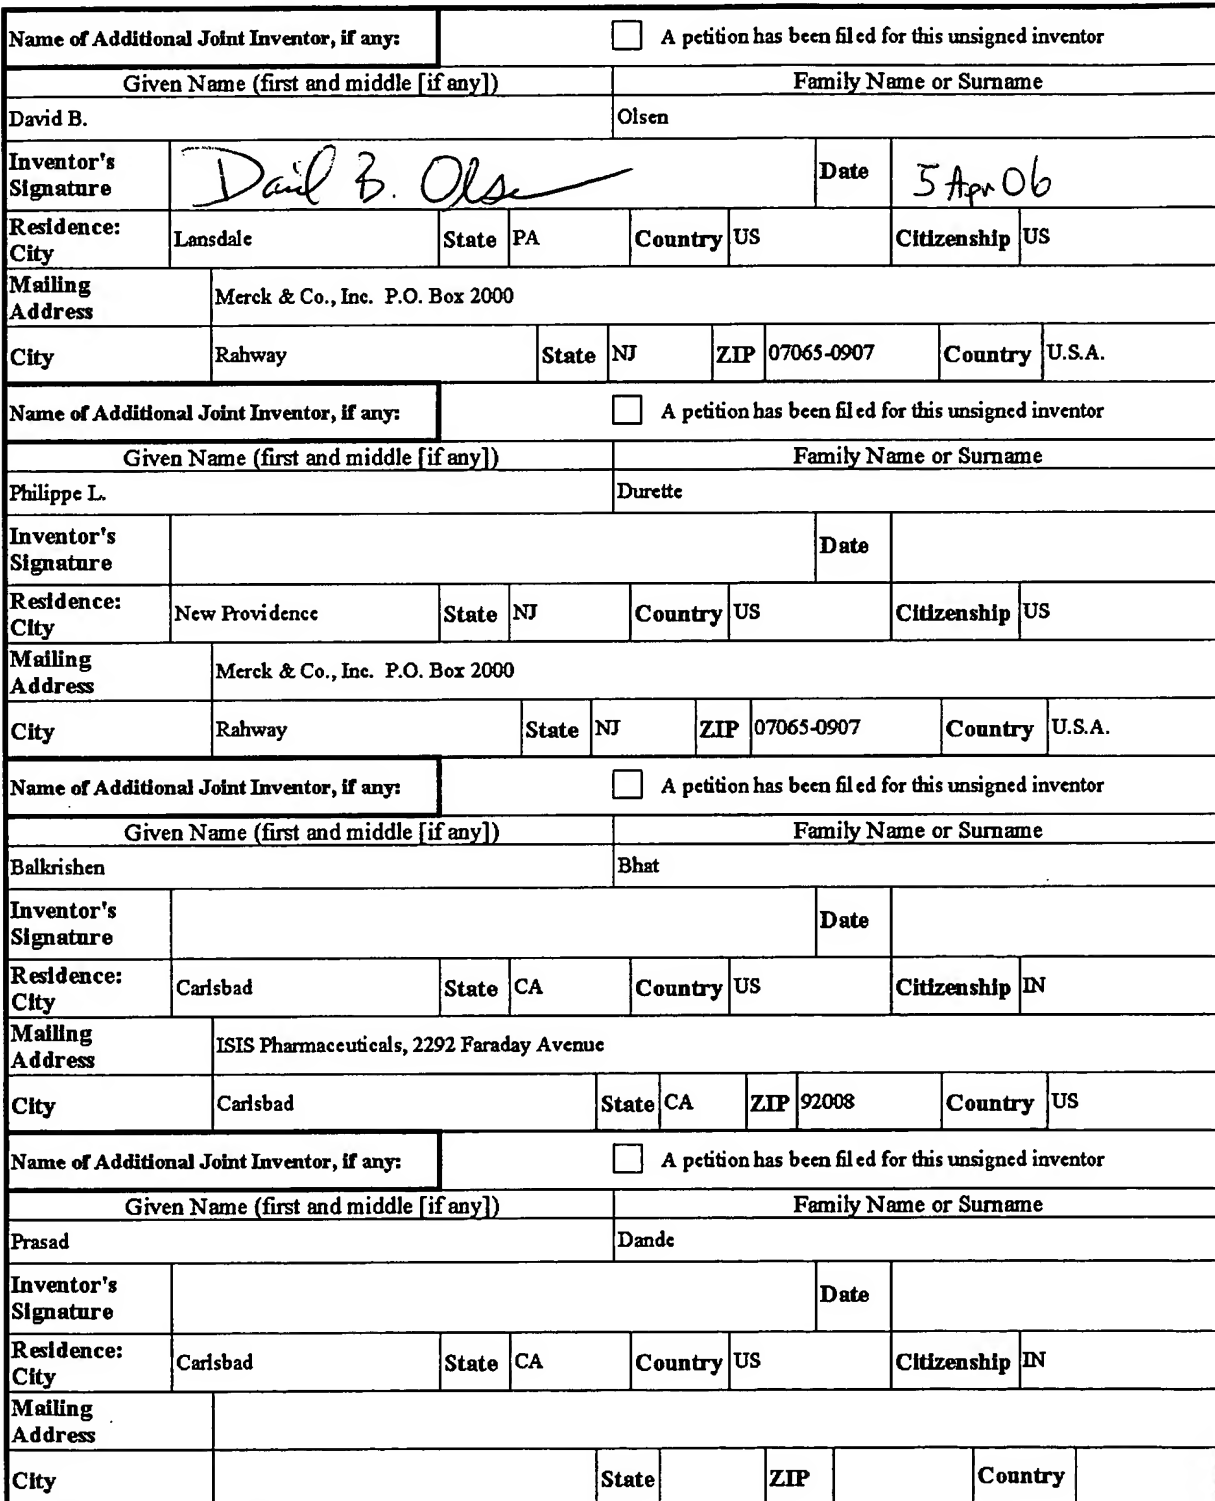 Name of Additional Joint Inventor, if any: A petition has been filed for this unsigned inventor
Given Name (first and middle [if any]) Family Name or Surname
David B. Olsen
Inventor's Signature David B. Olsen Date 5 Apr 06
Residence: City Lansdale State PA Country US Citizenship US
Mailing Address Merck & Co., Inc. P.O. Box 2000
City Rahway State NJ ZIP 07065-0907 Country U.S.A.
Name of Additional Joint Inventor, if any: A petition has been filed for this unsigned inventor
Given Name (first and middle [if any]) Family Name or Surname
Philippe L. Durette
Inventor's Signature Date
Residence: City New Providence State NJ Country US Citizenship US
Mailing Address Merck & Co., Inc. P.O. Box 2000
City Rahway State NJ ZIP 07065-0907 Country U.S.A.
Name of Additional Joint Inventor, if any: A petition has been filed for this unsigned inventor
Given Name (first and middle [if any]) Family Name or Surname
Balkrishen Bhat
Inventor's Signature Date
Residence: City Carlsbad State CA Country US Citizenship IN
Mailing Address ISIS Pharmaceuticals, 2292 Faraday Avenue
City Carlsbad State CA ZIP 92008 Country US
Name of Additional Joint Inventor, if any: A petition has been filed for this unsigned inventor
Given Name (first and middle [if any]) Family Name or Surname
Prasad Dande
Inventor's Signature Date
Residence: City Carlsbad State CA Country US Citizenship IN
Mailing Address
City State ZIP Country